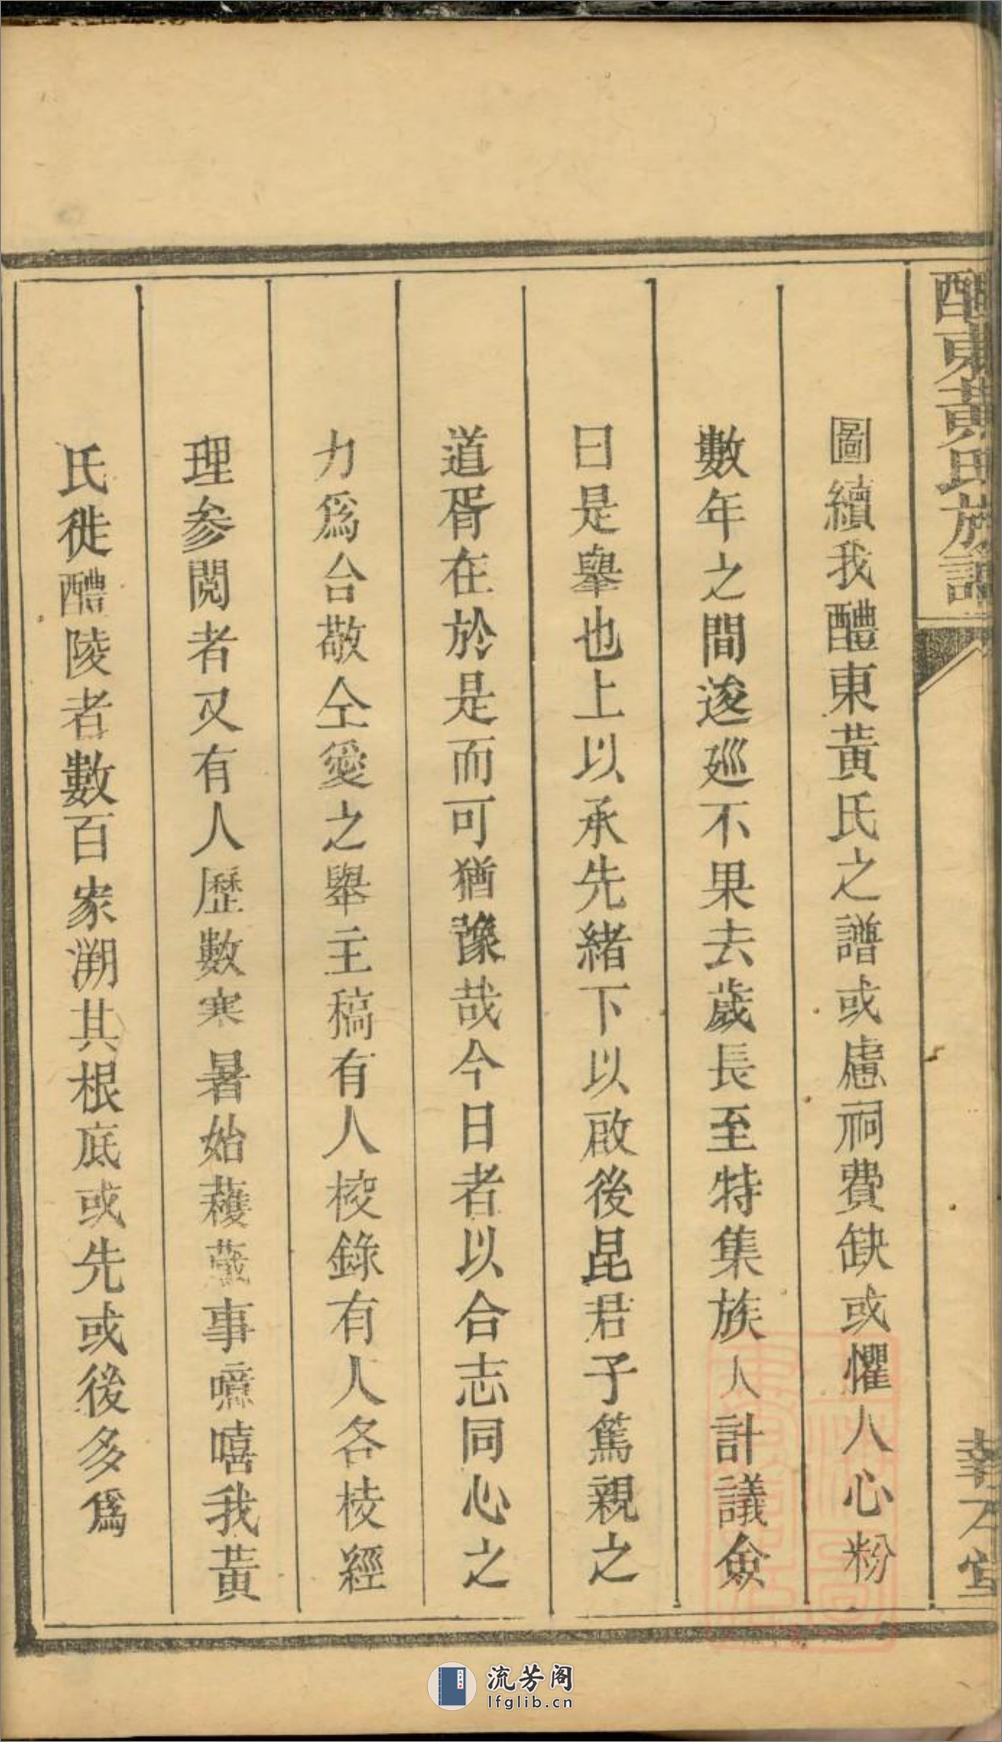 醴東黃氏族譜
圖續我醴東黃氏之譜或慮祠費缺或懼人心粉
數年之間逡廵不果去歲長至特集族人計議僉
曰是舉也上以承先緒下以啟後昆君子篤親之
道胥在於是而可猶豫哉今日者以合志同心之
力爲台敬仝愛之舉主稿有人校錄有人各校經
理參閱者又有人歷數寒暑始蕆事噫嘻我黃
氏徙醴陵者數百家溯其根底或先或後多爲
流芳阁
lfglib.cn